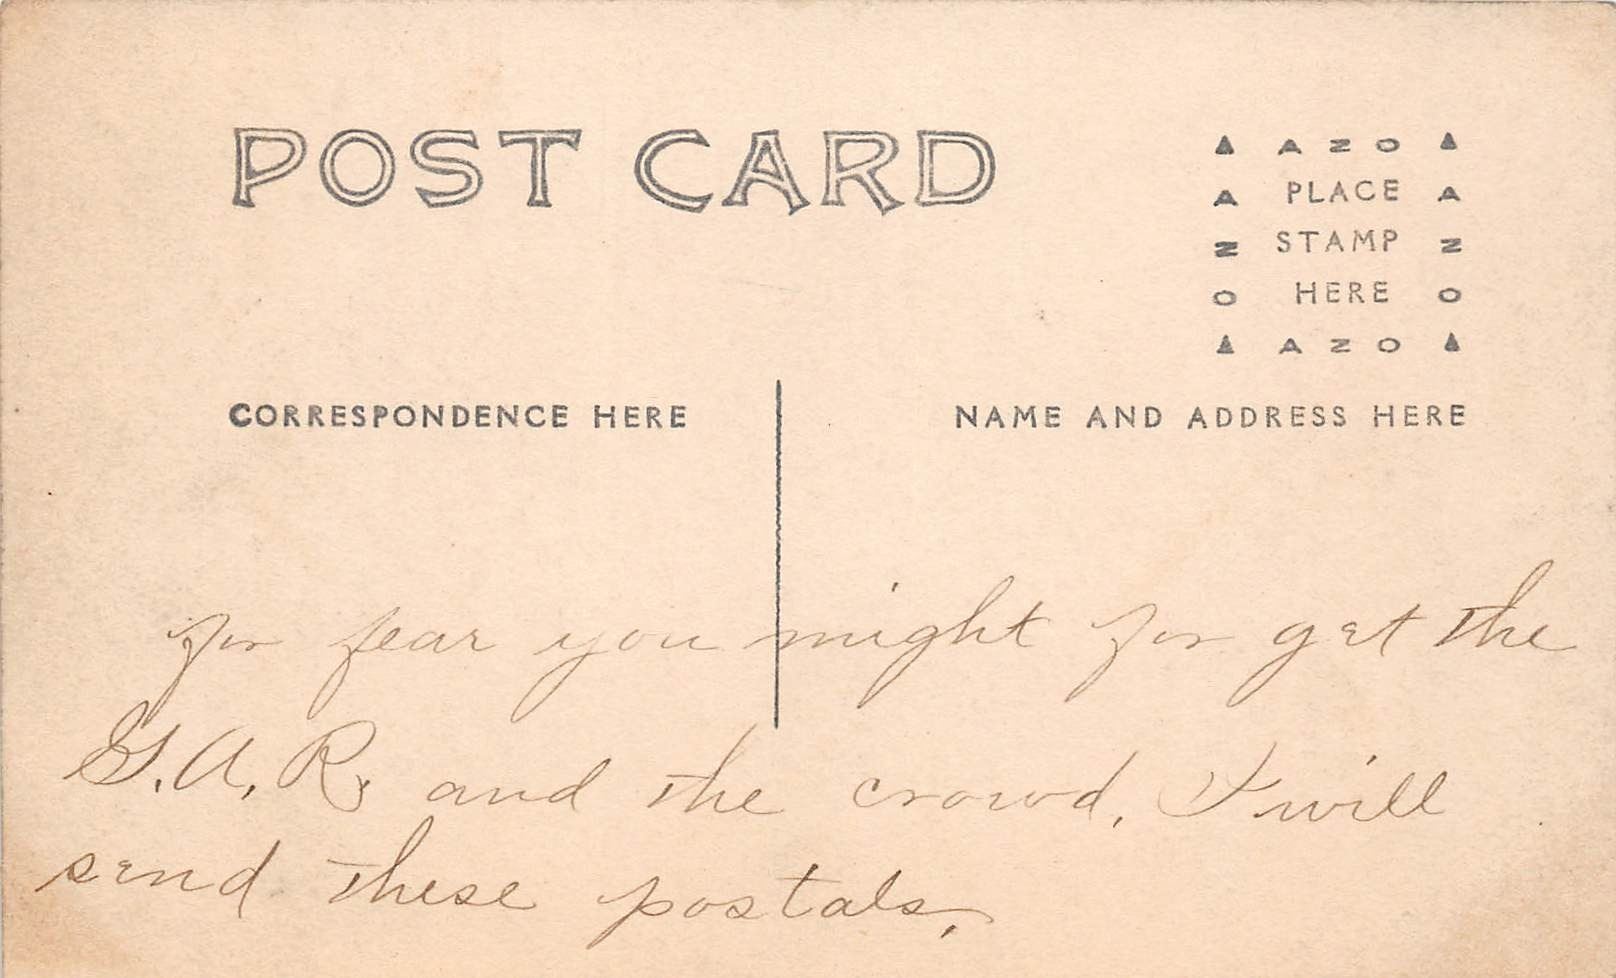 POST CARD
▲ A Z O ▲
A PLACE A
Z STAMP Z
O HERE O
▲ A Z O ▲
CORRESPONDENCE HERE
NAME AND ADDRESS HERE
for fear you might for get the
G.A.R. and the crowd. I will
send these postals.